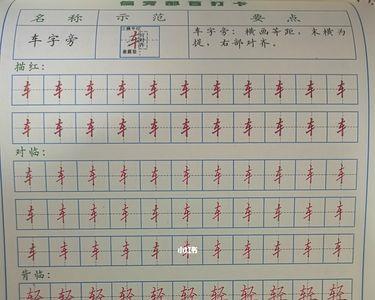 偏旁部首打卡
名称 示范 要点
车字旁
右部对齐
车字旁：横画等距，末横为
提，右部对齐。
描红：
车 车 车 车 车 车 车 车 车 车 车
车 车 车 车 车 车 车 车 车 车 车
对临：
车 车 车 车 车 车 车 车 车 车 车
车 车 车 车 车 车 车 车 车 车 车
车 车 车 车 车 车 车 车 车 车 车
小红书
背临：
轻 轻 轻 轻 轻 轻 轻 轻 轻 轻 轻